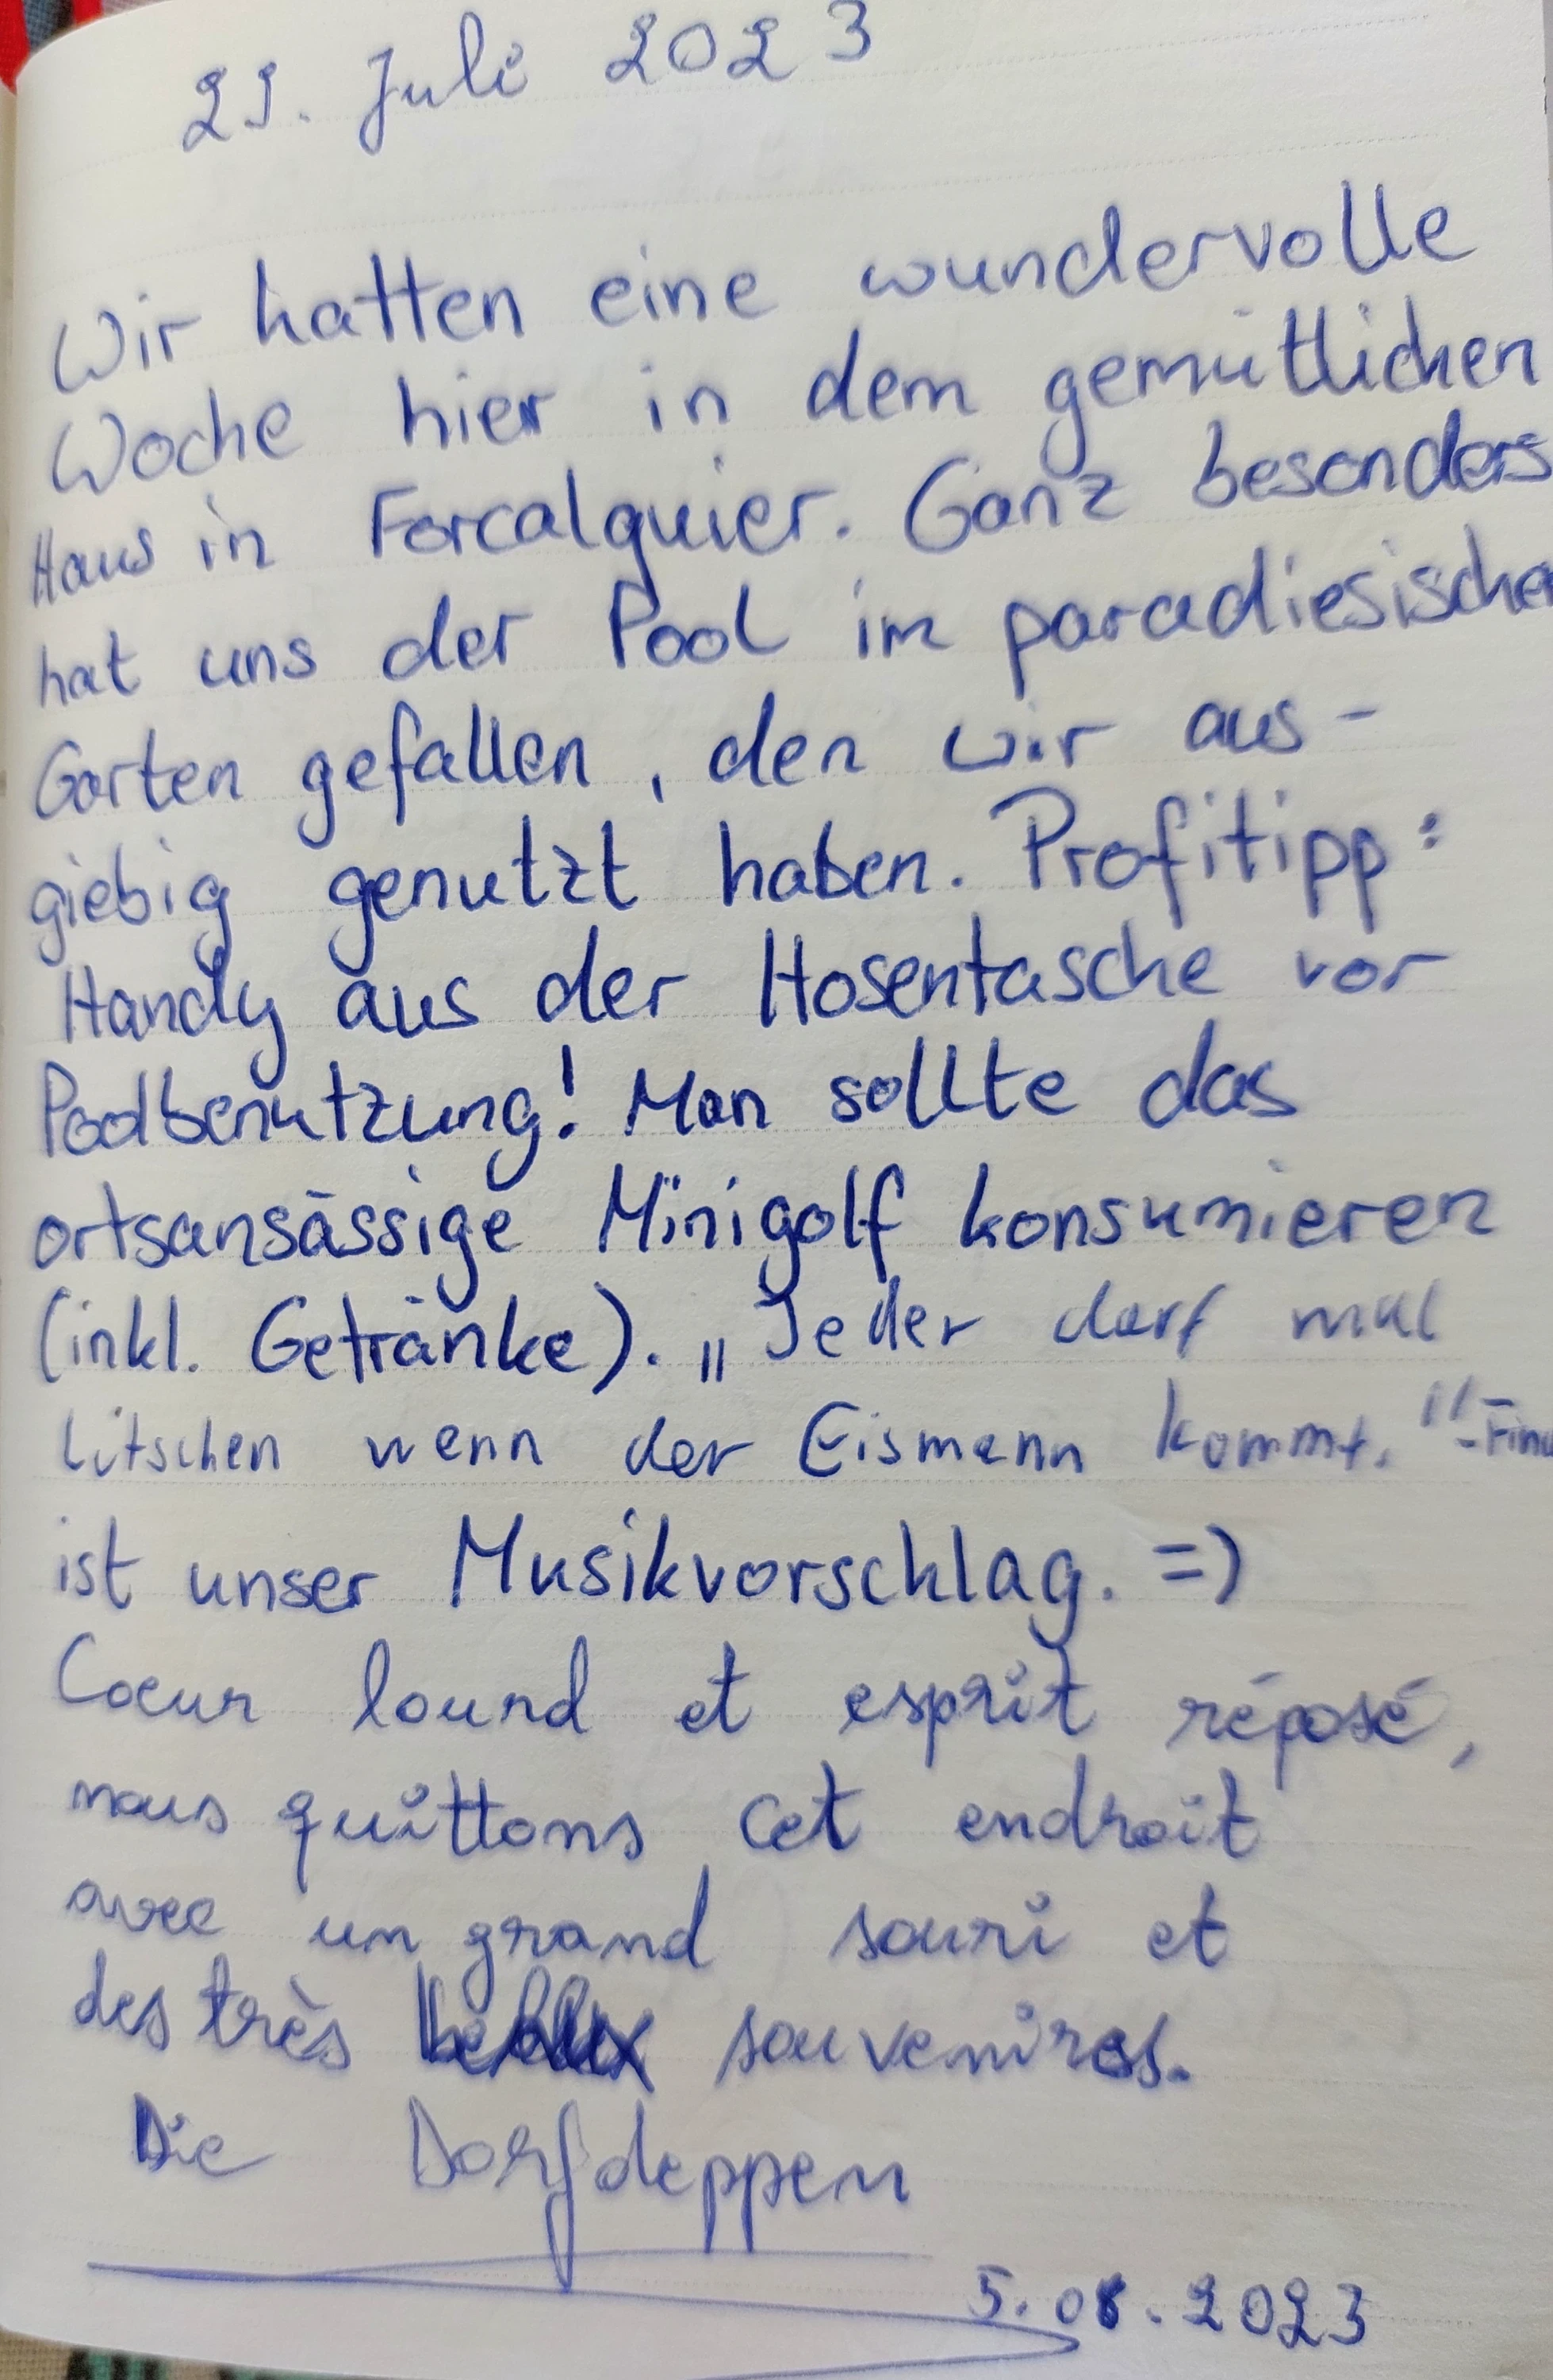 29. Juli 2023
Wir hatten eine wundervolle
Woche hier in dem gemütlichen
Haus in Forcalquier. Ganz besonders
hat uns der Pool im paradiesischen
Garten gefallen, den wir aus-
giebig genutzt haben. Profitipp:
Handy aus der Hosentasche vor
Poolbenutzung! Man sollte das
ortsansässige Minigolf konsumieren
(inkl. Getränke). „Jeder darf mal
lutschen wenn der Eismann kommt."-
ist unser Musikvorschlag. =)
Coeur lourd et esprit réposé,
nous quittons cet endroit
avec un grand souri et
des très souvenires.
Die Dorfdeppen
5.08.2023